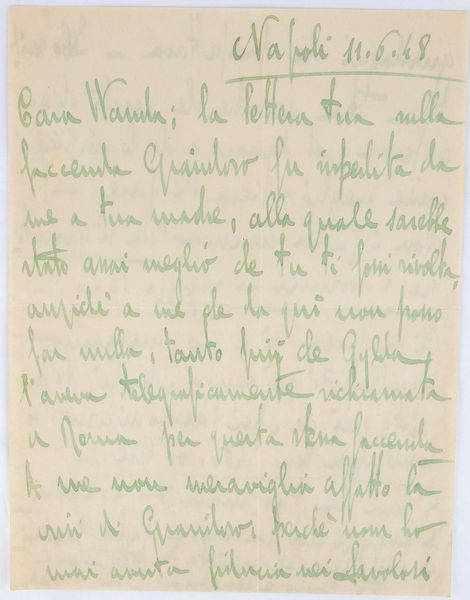 Napoli 11.6.48
Cara Wanda; la lettera tua sulla
faccenda Grandoso fu spedita da
me a tua madre, alla quale sarebbe
stato assai meglio che tu ti fossi rivolta,
anziché a me che da qui non posso
far nulla, tanto più che Gylda
t'aveva telegraficamente richiamata
a Roma per questa stessa faccenda
A me non meraviglia affatto la
crisi di perché non ho
mai avuta fiducia nei